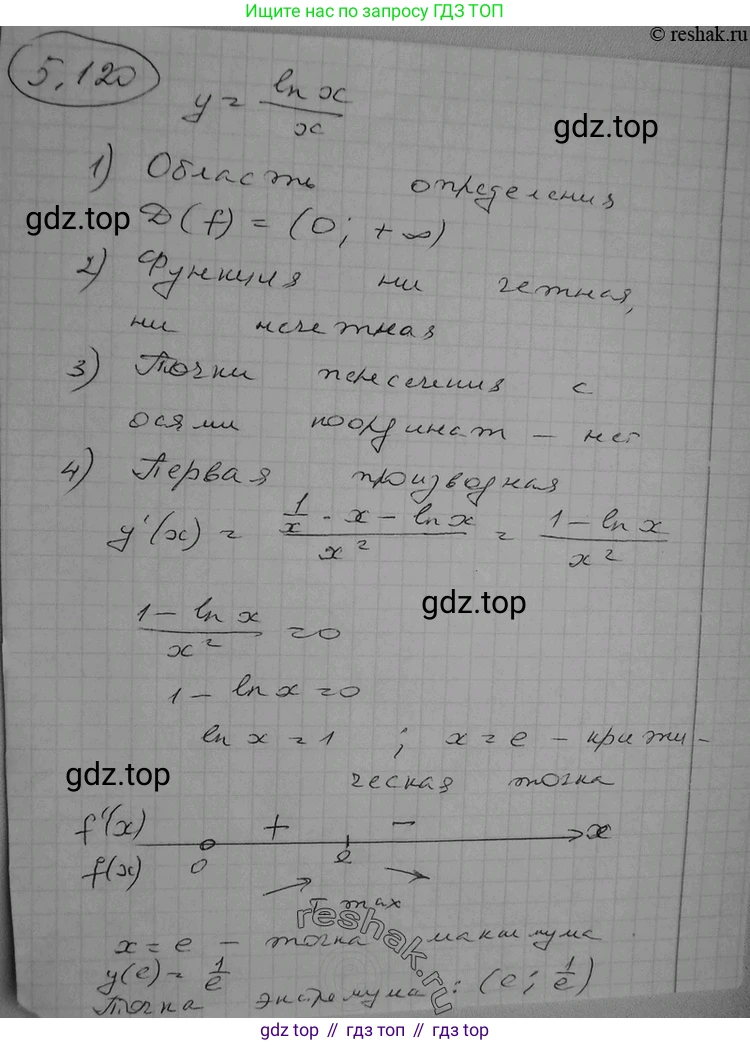 Ищите нас по запросу ГДЗ ТОП
© reshak.ru
5.120
y = ln x / x
gdz.top
1) Область определения
gdz.top
D(f) = (0; +∞)
2) Функция ни четная,
ни нечетная
3) Точки пересечения с
осями координат – нет
4) Первая производная
y'(x) = (1/x · x – ln x) / x² = (1 – ln x) / x²
gdz.top
(1 – ln x) / x² = 0
1 – ln x = 0
ln x = 1 ; x = e – крити-
gdz.top
ческая точка
f'(x) + – x
f(x) 0 e
т. max
reshak.ru
x = e – точка максимума
y(e) = 1/e
Точка экстремума: (e; 1/e)
gdz.top // гдз топ // gdz.top